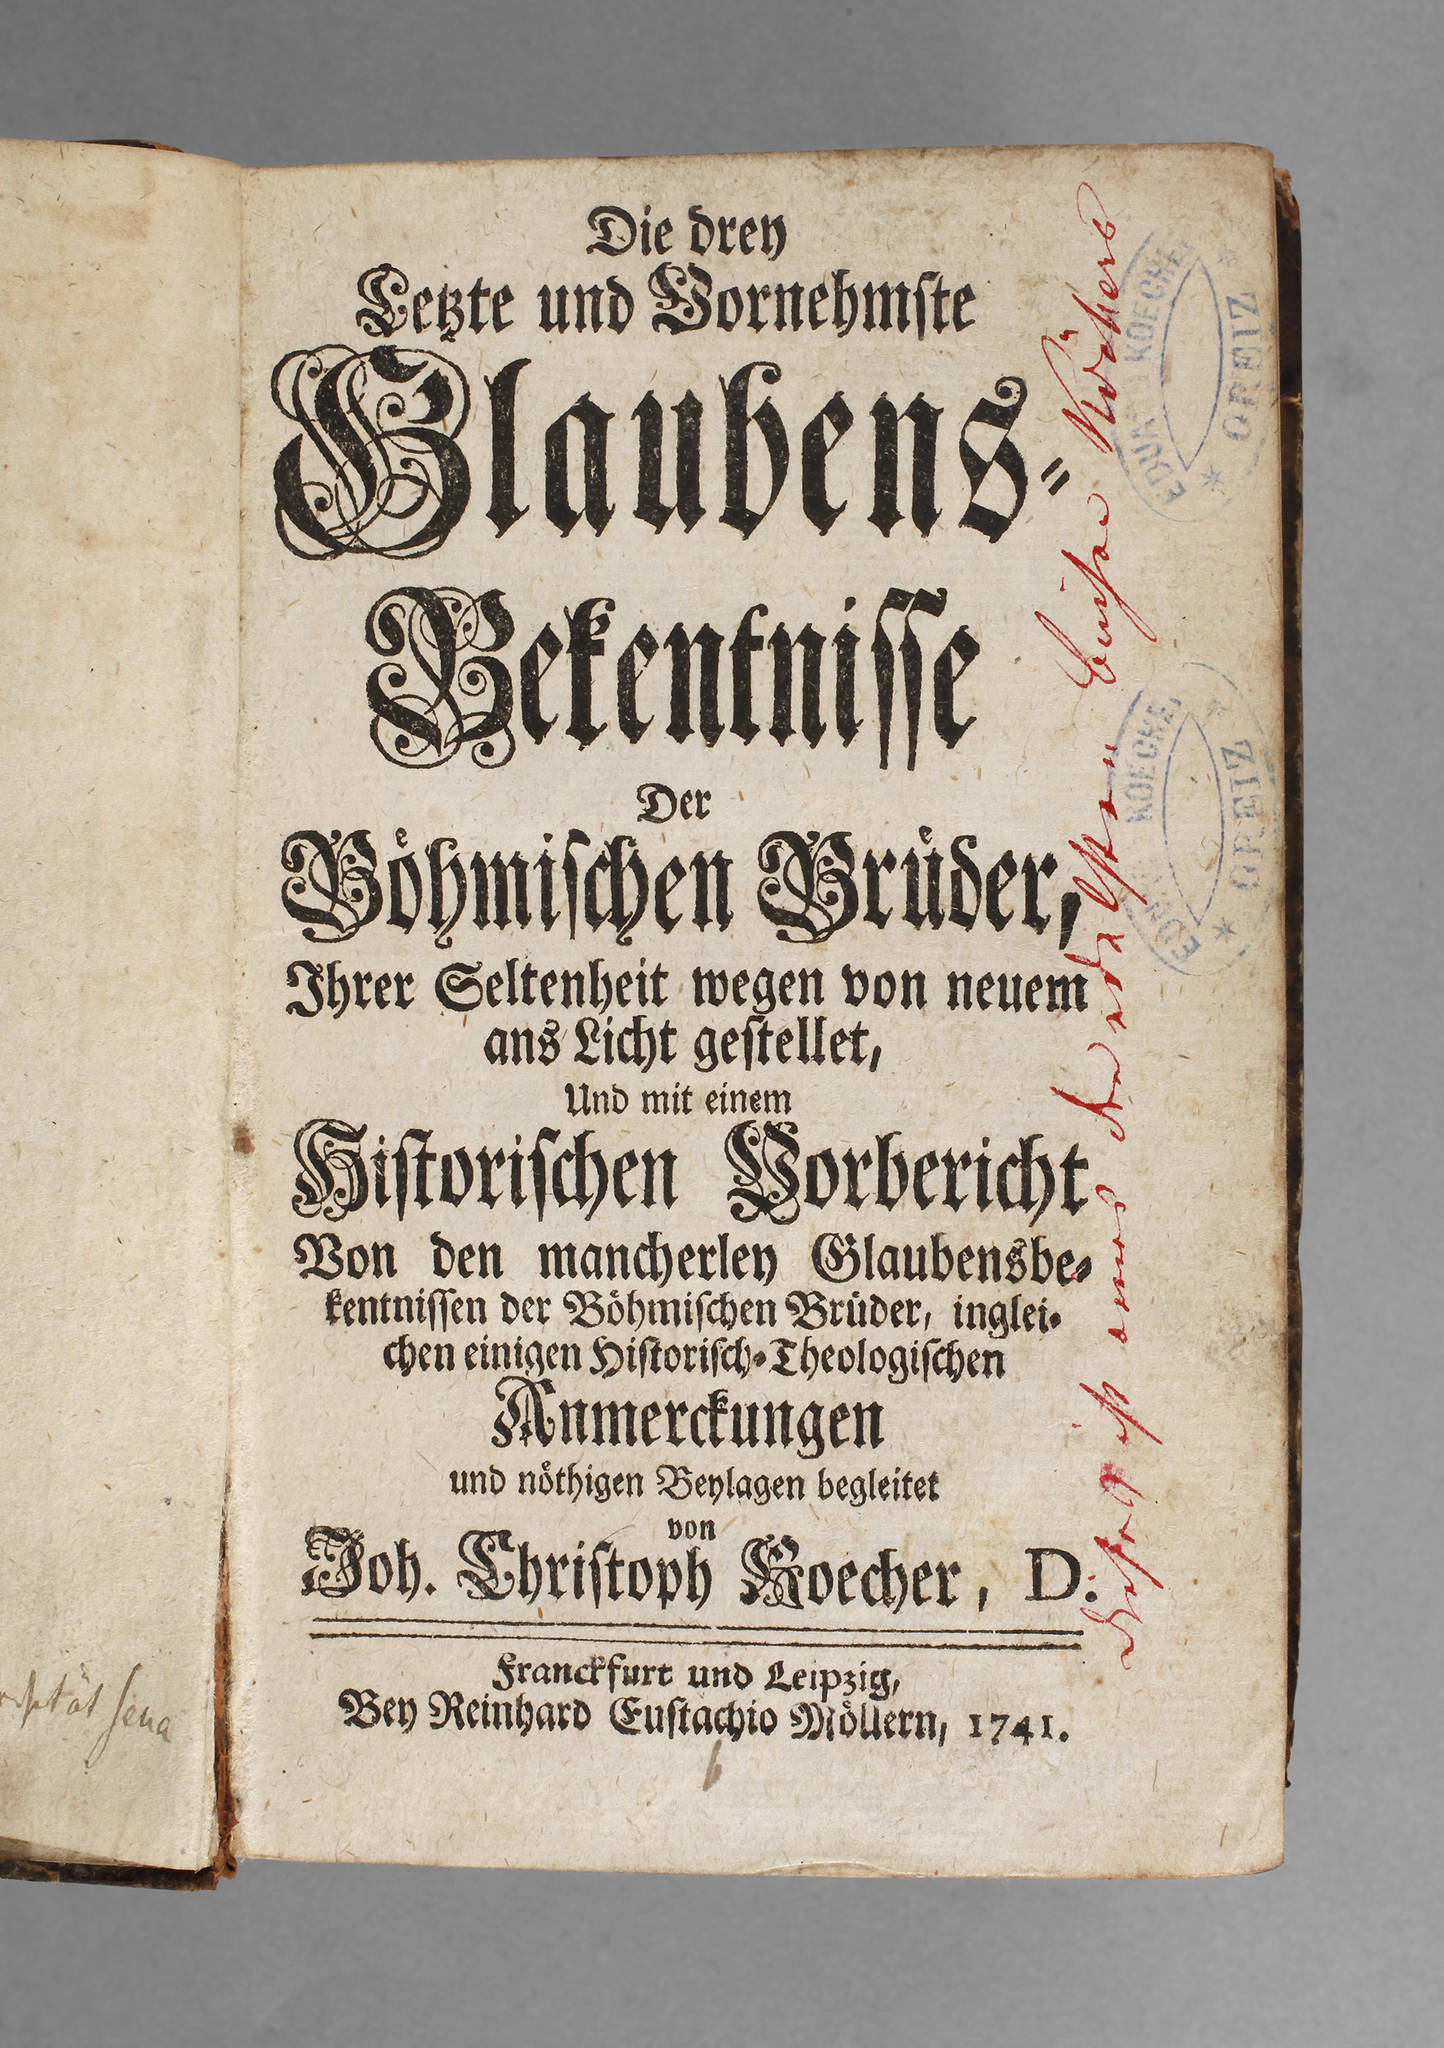 Die drey
Letzte und Vornehmste
Glaubens-
Bekentnisse
Der
Böhmischen Brüder,
Ihrer Seltenheit wegen von neuem
ans Licht gestellet,
Und mit einem
Historischen Vorbericht
Von den mancherley Glaubensbe-
kentnissen der Böhmischen Brüder, inglei-
chen einigen Historisch-Theologischen
Anmerckungen
und nöthigen Beylagen begleitet
von
Joh. Christoph Koecher, D.
Franckfurt und Leipzig,
Bey Reinhard Eustachio Möllern, 1741.
ist eines der Köchers
KOECHE
GREIZ
KOECHE
GREIZ
Jena